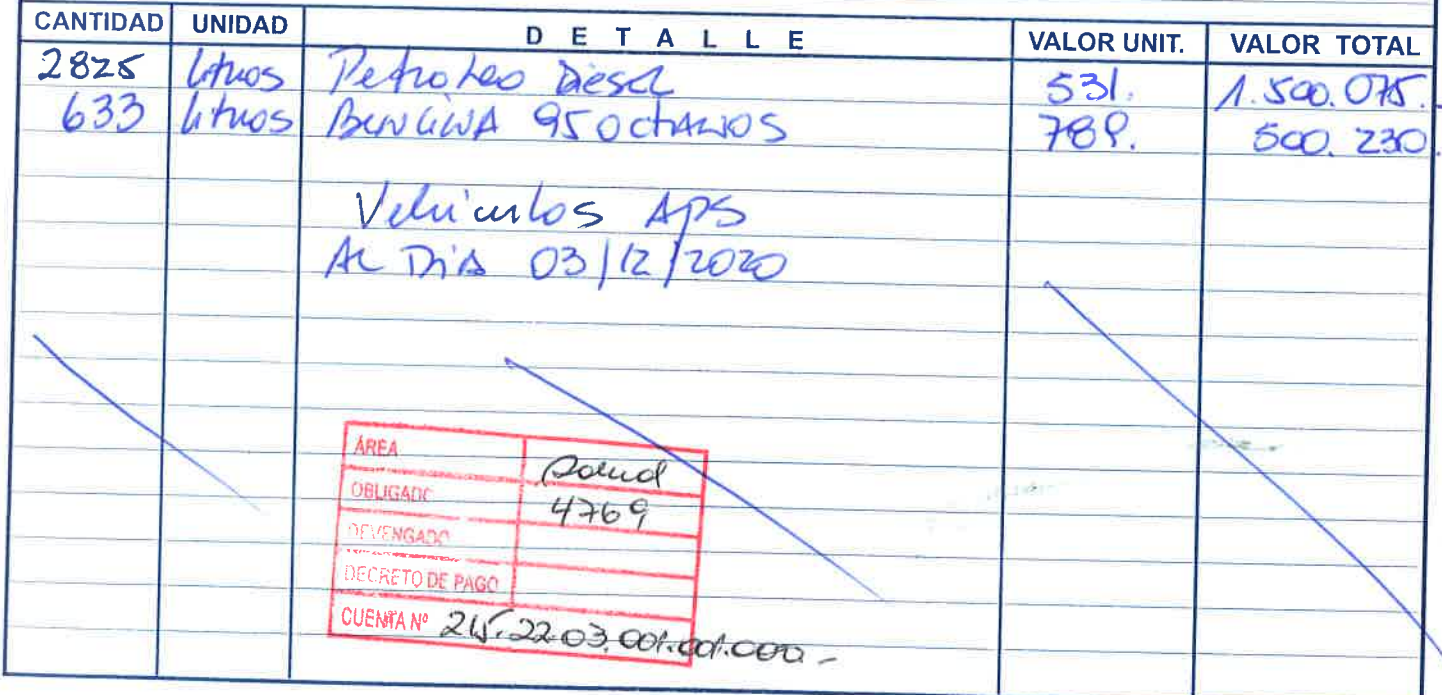 CANTIDAD UNIDAD DETALLE VALOR UNIT. VALOR TOTAL
2825 litros Petroleo Diesel 531. 1.500.075.
633 litros BENCINA 95 octANOS 789. 500.230.
Vehiculos APS
AL DiA 03/12/2020
ÁREA Salud
OBLIGADO 4769
DEVENGADO
DECRETO DE PAGO
CUENTA Nº 215.22.03.001.001.000.-